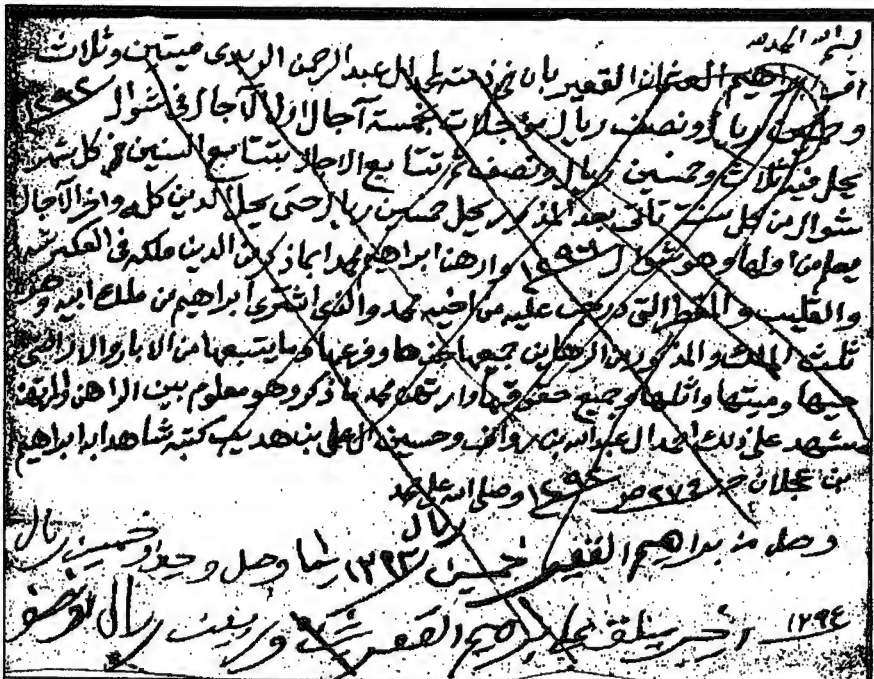 بسم الله الحمد لله
اقر ابراهيم العثمان القعير بان في ذمته لمحمد ال عبد الرحمن الربدي ميتين وثلاث
وخمسين ريال ونصف ريال مؤجلات بخمسة آجال اول الآجال في شوال ١٢٩٢
يحل فيه ثلاث وخمسين ريال ونصف ثم تتابع الاجال بتتابع السنين في كل شهر
شوال من كل سنة تأتي بعد المذكور يحل خمسين ريال حتى يحل الدين كله واخر الآجال
يعلم من اولها وهو شوال ١٢٩٦ وارهن ابراهيم محمد ابما ذكر من الدين ملكه في العكيرشه
والقليب والخط التي من اخيه محمد والذي اشترى ابراهيم من ملك ابيه وهو
ثلث الملك والمذكورين الرهاين جميعها جذعها وفرعها وما يتبعها من الابار والاراضي
حيها وميتها واثلها وجميع حقوقها وارتهن محمد ما ذكر وهو معلوم بين الراهن والمرتهن
شهد على ذلك احمد ال عبد الله بن رواف وحسين ال علي بن هديب كتبه شاهدا به ابراهيم
بن عجلان ٢٧ ١٢٩٢ وصلى الله على محمد
وصل من ابراهيم القعير خمسين ريال ١٢٩٣ وصل وخمسين ريال
١٢٩٤ ابراهيم القعير ريال ونصف